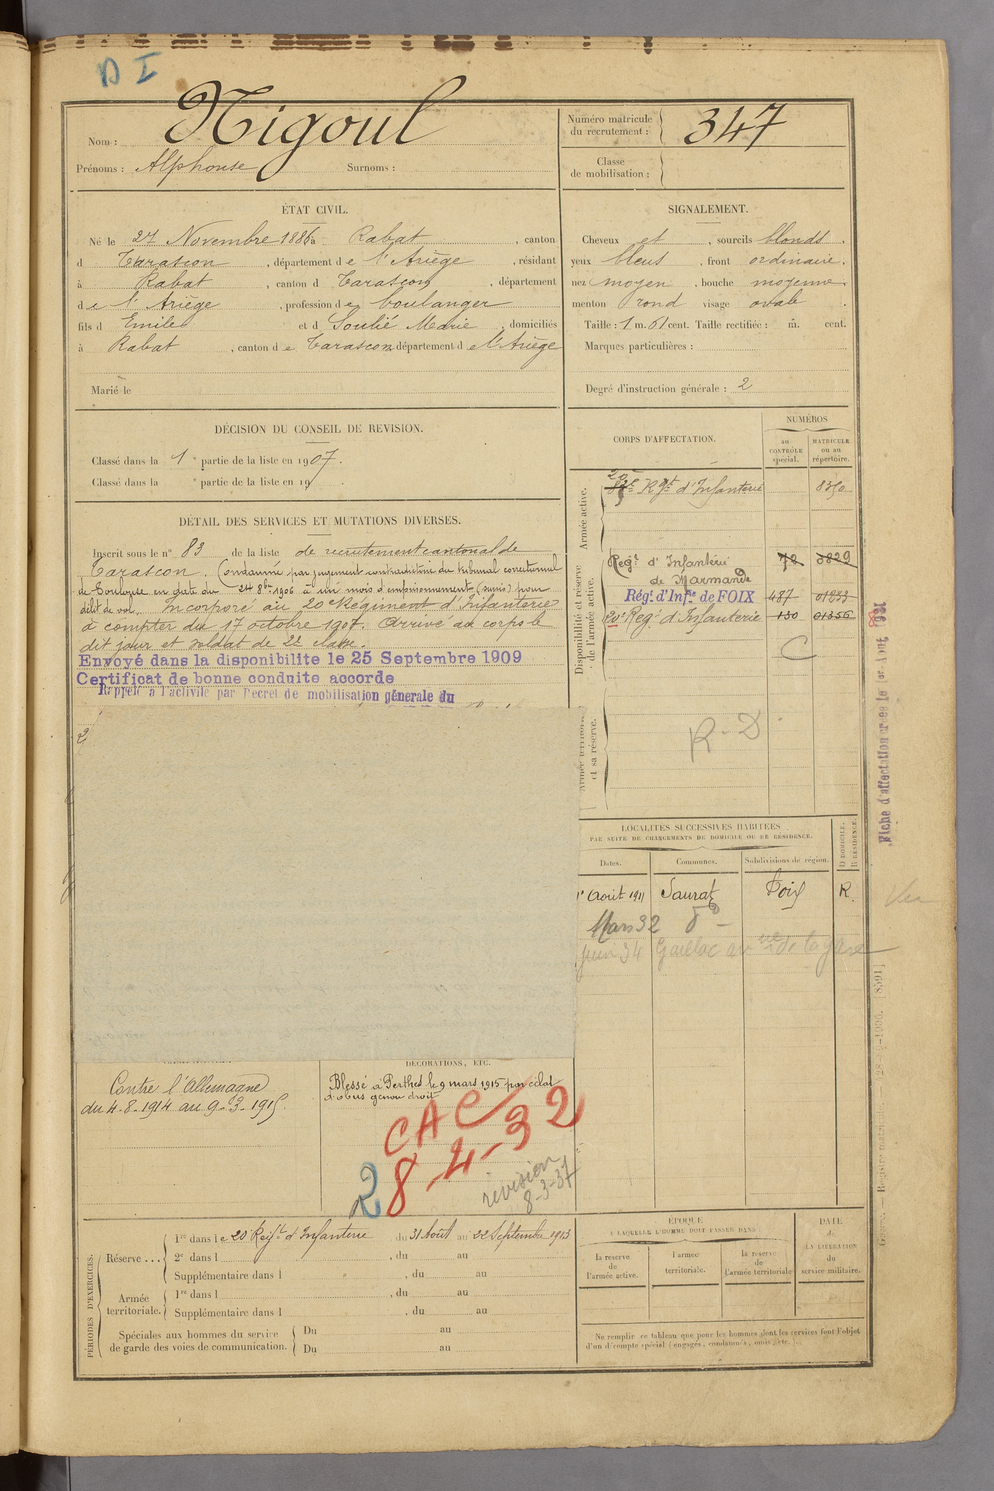 D I
Nom : Nigoul
Prénoms : Alphonse Surnoms :
Numéro matricule du recrutement : 347
Classe de mobilisation :
ÉTAT CIVIL.
Né le 27 Novembre 1886 à Rabat, canton
d Tarascon, département de l'Ariège, résidant
à Rabat, canton d Tarascon, département
de l'Ariège, profession de boulanger
fils d Emile et d Soulié Marie, domiciliés
à Rabat, canton de Tarascon département de l'Ariège
Marié le
SIGNALEMENT.
Cheveux et, sourcils blonds.
yeux bleus, front ordinaire.
nez moyen, bouche moyenne
menton rond visage ovale.
Taille : 1 m. 61 cent. Taille rectifiée : m. cent.
Marques particulières :
Degré d'instruction générale : 2
DÉCISION DU CONSEIL DE REVISION.
Classé dans la 1e partie de la liste en 1907.
Classé dans la e partie de la liste en 19
DÉTAIL DES SERVICES ET MUTATIONS DIVERSES.
Inscrit sous le n° 83 de la liste de recrutement cantonal de
Tarascon. Condamné par jugement contradictoire du tribunal correctionnel
de Toulouse en date du 24 8bre 1906 à un mois d'emprisonnement (sursis) pour
délit de vol. Incorporé au 20e Régiment d'Infanterie
à compter du 17 octobre 1907. Arrivé au corps le
dit jour et soldat de 2e classe.
Envoyé dans la disponibilite le 25 Septembre 1909
Certificat de bonne conduite accorde
Rappelé à l'activité par Décret de mobilisation générale du
CORPS D'AFFECTATION.
NUMÉROS
au CONTRÔLE spécial.
MATRICULE ou au répertoire.
Armée active.
20e Rgt d'Infanterie 8350
Disponibilité et réserve de l'armée active.
Regt d'Infanterie 78 0829
de Marmande
Régt d'Infie de FOIX 487 01833
20e Reg. d'Infanterie 130 01356
C
Armée territoriale et sa réserve.
R. D
Fiche d'affectation créée le 1er Août 1931
LOCALITÉS SUCCESSIVES HABITÉES
PAR SUITE DE CHANGEMENTS DE DOMICILE OU DE RÉSIDENCE.
Dates. Communes. Subdivisions de région. D DOMICILE. R RÉSIDENCE.
1er Août 1911 Saurat Foix R.
Mars 32 do
Juin 34 Gaillac
Vu
DÉCORATIONS, ETC.
Contre l'Allemagne
du 4-8-1914 au 9-3-1915.
Blessé à Perthes le 9 mars 1915 par éclat
d'obus genou droit
CAC
28-4-32
révision
8-3-37
PÉRIODES D'EXERCICES.
Réserve ... 1re dans le 20 Regt d'Infanterie du 31 Août au 22 Septembre 1913
2e dans l , du au
Supplémentaire dans l , du au
Armée territoriale. 1re dans l , du au
Supplémentaire dans l , du au
Spéciales aux hommes du service de garde des voies de communication. Du au
Du au
ÉPOQUE
À LAQUELLE L'HOMME DOIT PASSER DANS
la réserve de l'armée active.
l'armée territoriale.
la réserve de l'armée territoriale
DATE de LA LIBÉRATION du service militaire.
Ne remplir ce tableau que pour les hommes dont les services font l'objet
d'un décompte spécial (engagés, condamnés, omis, etc.)